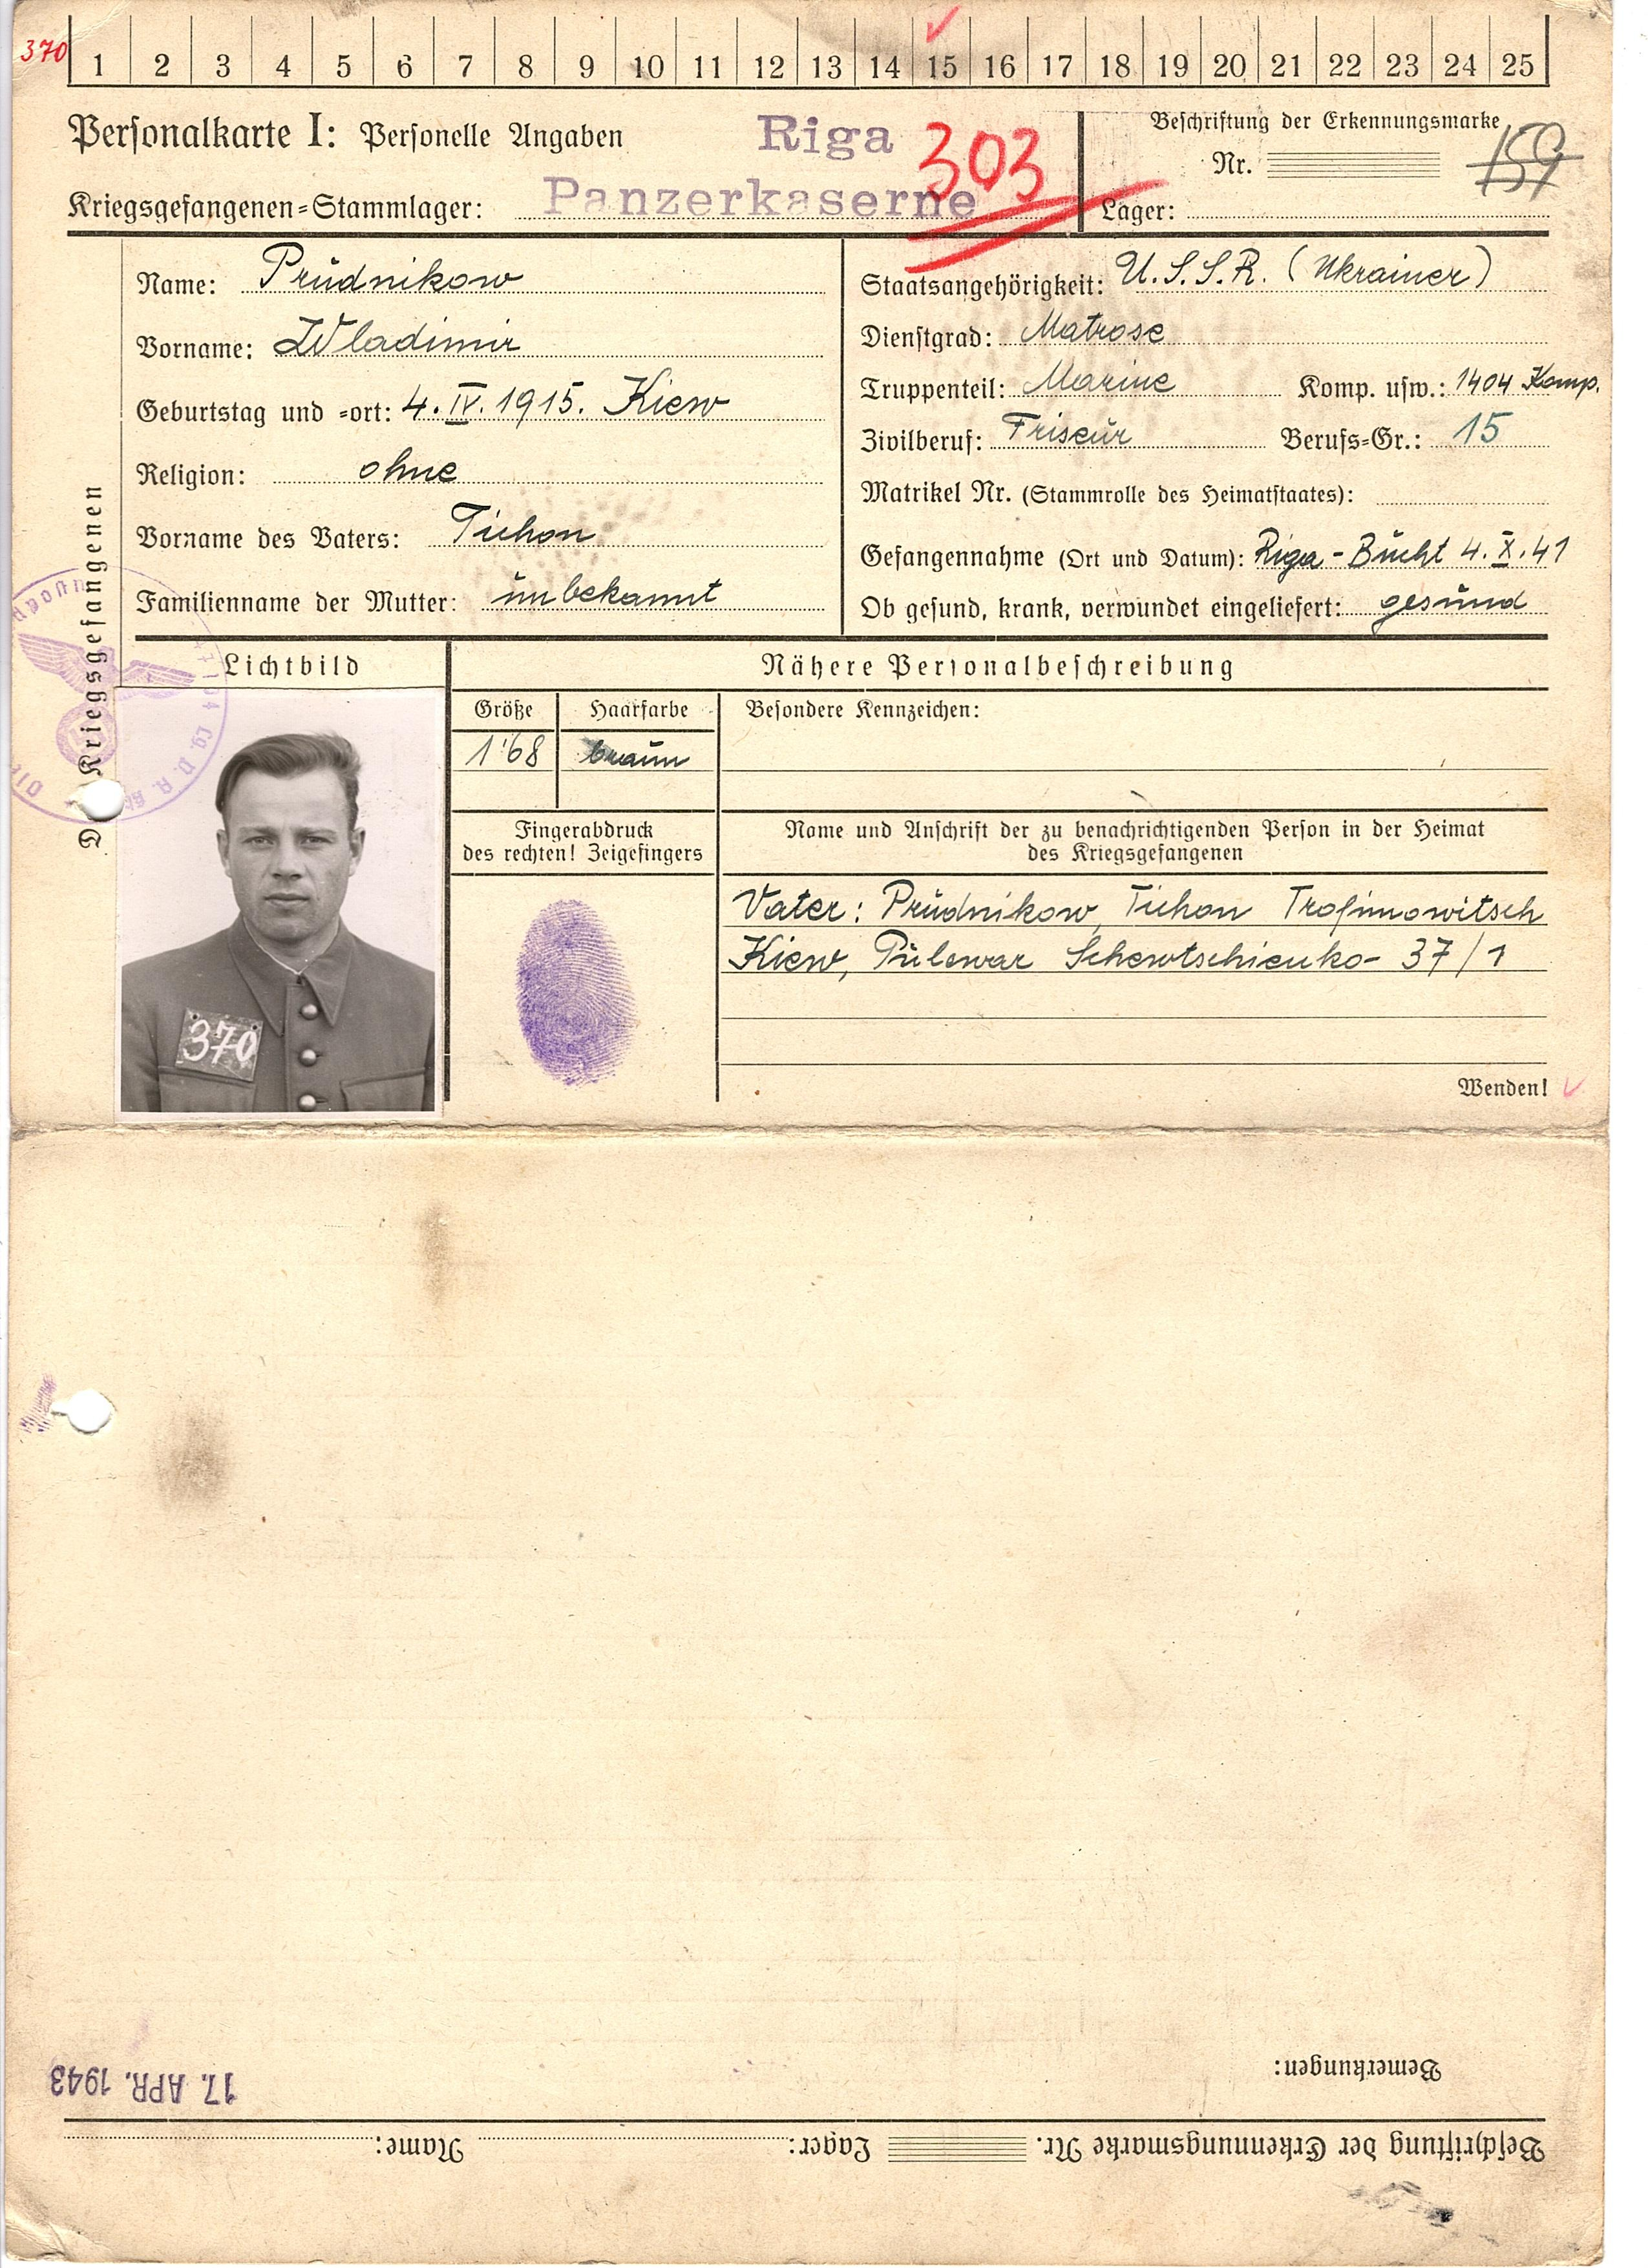 370
1 2 3 4 5 6 7 8 9 10 11 12 13 14 15 16 17 18 19 20 21 22 23 24 25
Personalkarte I: Personelle Angaben
Riga
303
Kriegsgefangenen=Stammlager: Panzerkaserne
Beschriftung der Erkennungsmarke
Nr. 159
Lager:
Name: Prŭdnikow
Vorname: Wladimir
Geburtstag und =ort: 4. IV. 1915. Kiew
Religion: ohne
Vorname des Vaters: Tichon
Familienname der Mutter: ŭnbekannt
Staatsangehörigkeit: U.S.S.R. (Ukrainer)
Dienstgrad: Matrose
Truppenteil: Marine Komp. usw.: 1404 Komp.
Zivilberuf: Friseŭr Berufs=Gr.: 15
Matrikel Nr. (Stammrolle des Heimatstaates):
Gefangennahme (Ort und Datum): Riga - Bŭcht 4. X. 41
Ob gesund, krank, verwundet eingeliefert: gesŭnd
Kriegsgefangenen
Lichtbild
370
Nähere Personalbeschreibung
Größe
1'68
Haarfarbe
braŭn
Besondere Kennzeichen:
Fingerabdruck
des rechten! Zeigefingers
Name und Anschrift der zu benachrichtigenden Person in der Heimat
des Kriegsgefangenen
Vater: Prŭdnikow, Tichon Trofimowitsch
Kiew, Pŭlewar Schewtschienko- 37/1
Wenden!
Bemerkungen:
17. APR. 1943
Beschriftung der Erkennungsmarke Nr. Lager: Name: